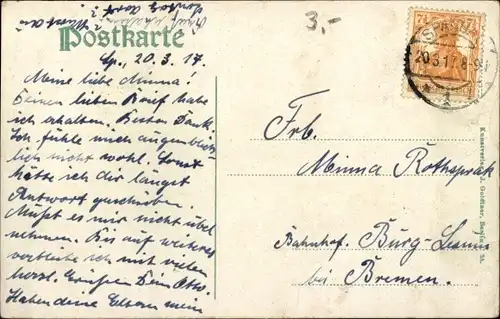 3,-
Postkarte
Sp., 20. 3. 17.
Meine liebe Minna!
Deinen lieben Brief habe
ich erhalten. Besten Dank.
Ich fühle mich augenblick-
lich nicht wohl. Sonst
hätte ich dir längst
Antwort geschrieben.
Mußt es mir nicht übel
nehmen. Bis auf weiteres
verbleibe ich mit vielen
herzl. Grüßen Dein
Haben deine Eltern mein
7½
20.3.17. 8-9
Frl.
Minna Rothsprak
Bahnhof. Burg-Lesum
bei Bremen.
Kunstverlag J. Goldiner, Berlin